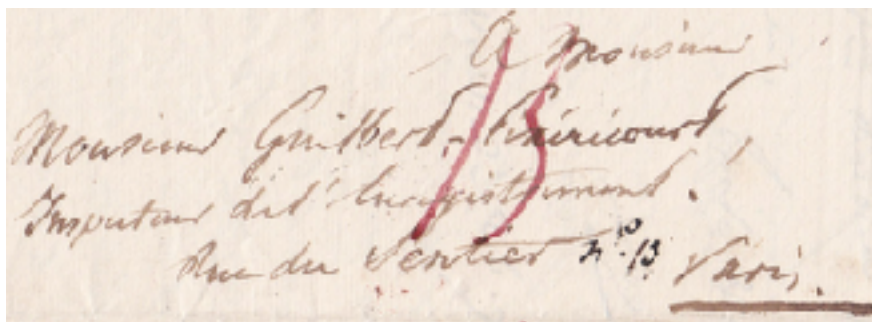 A Monsieur
Monsieur Guilbert-
Inspecteur de l'Enregistrement.
Rue du Sentier N.º 13 Paris.
13